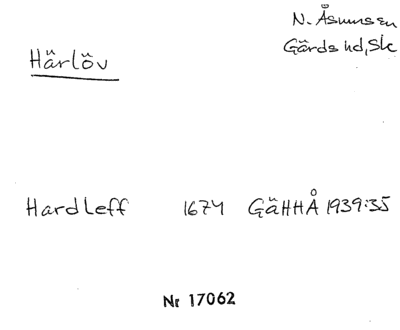 N. Åsumsen
Gärds hd, Sk
Härlöv
Hardleff 1674 GäHHÅ 1939:35
Nr 17062